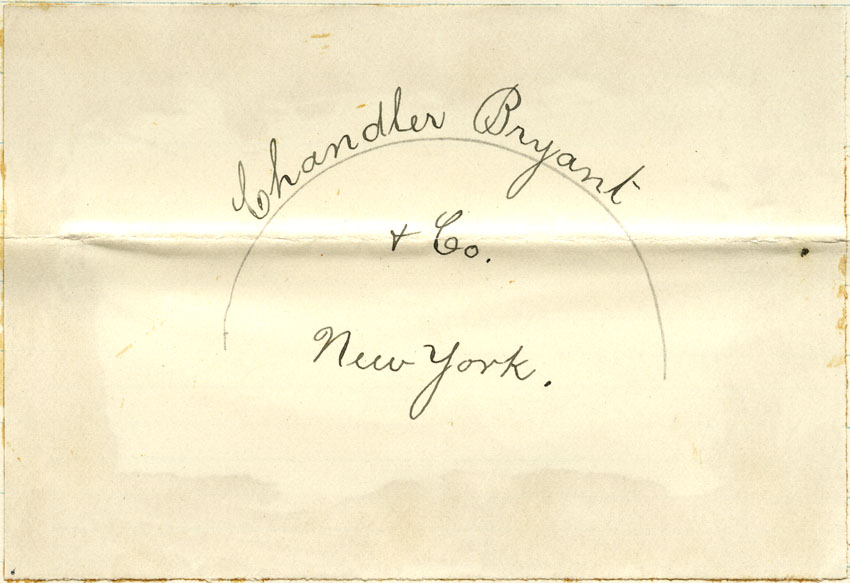 Chandler Bryant
+ Co.
New York.